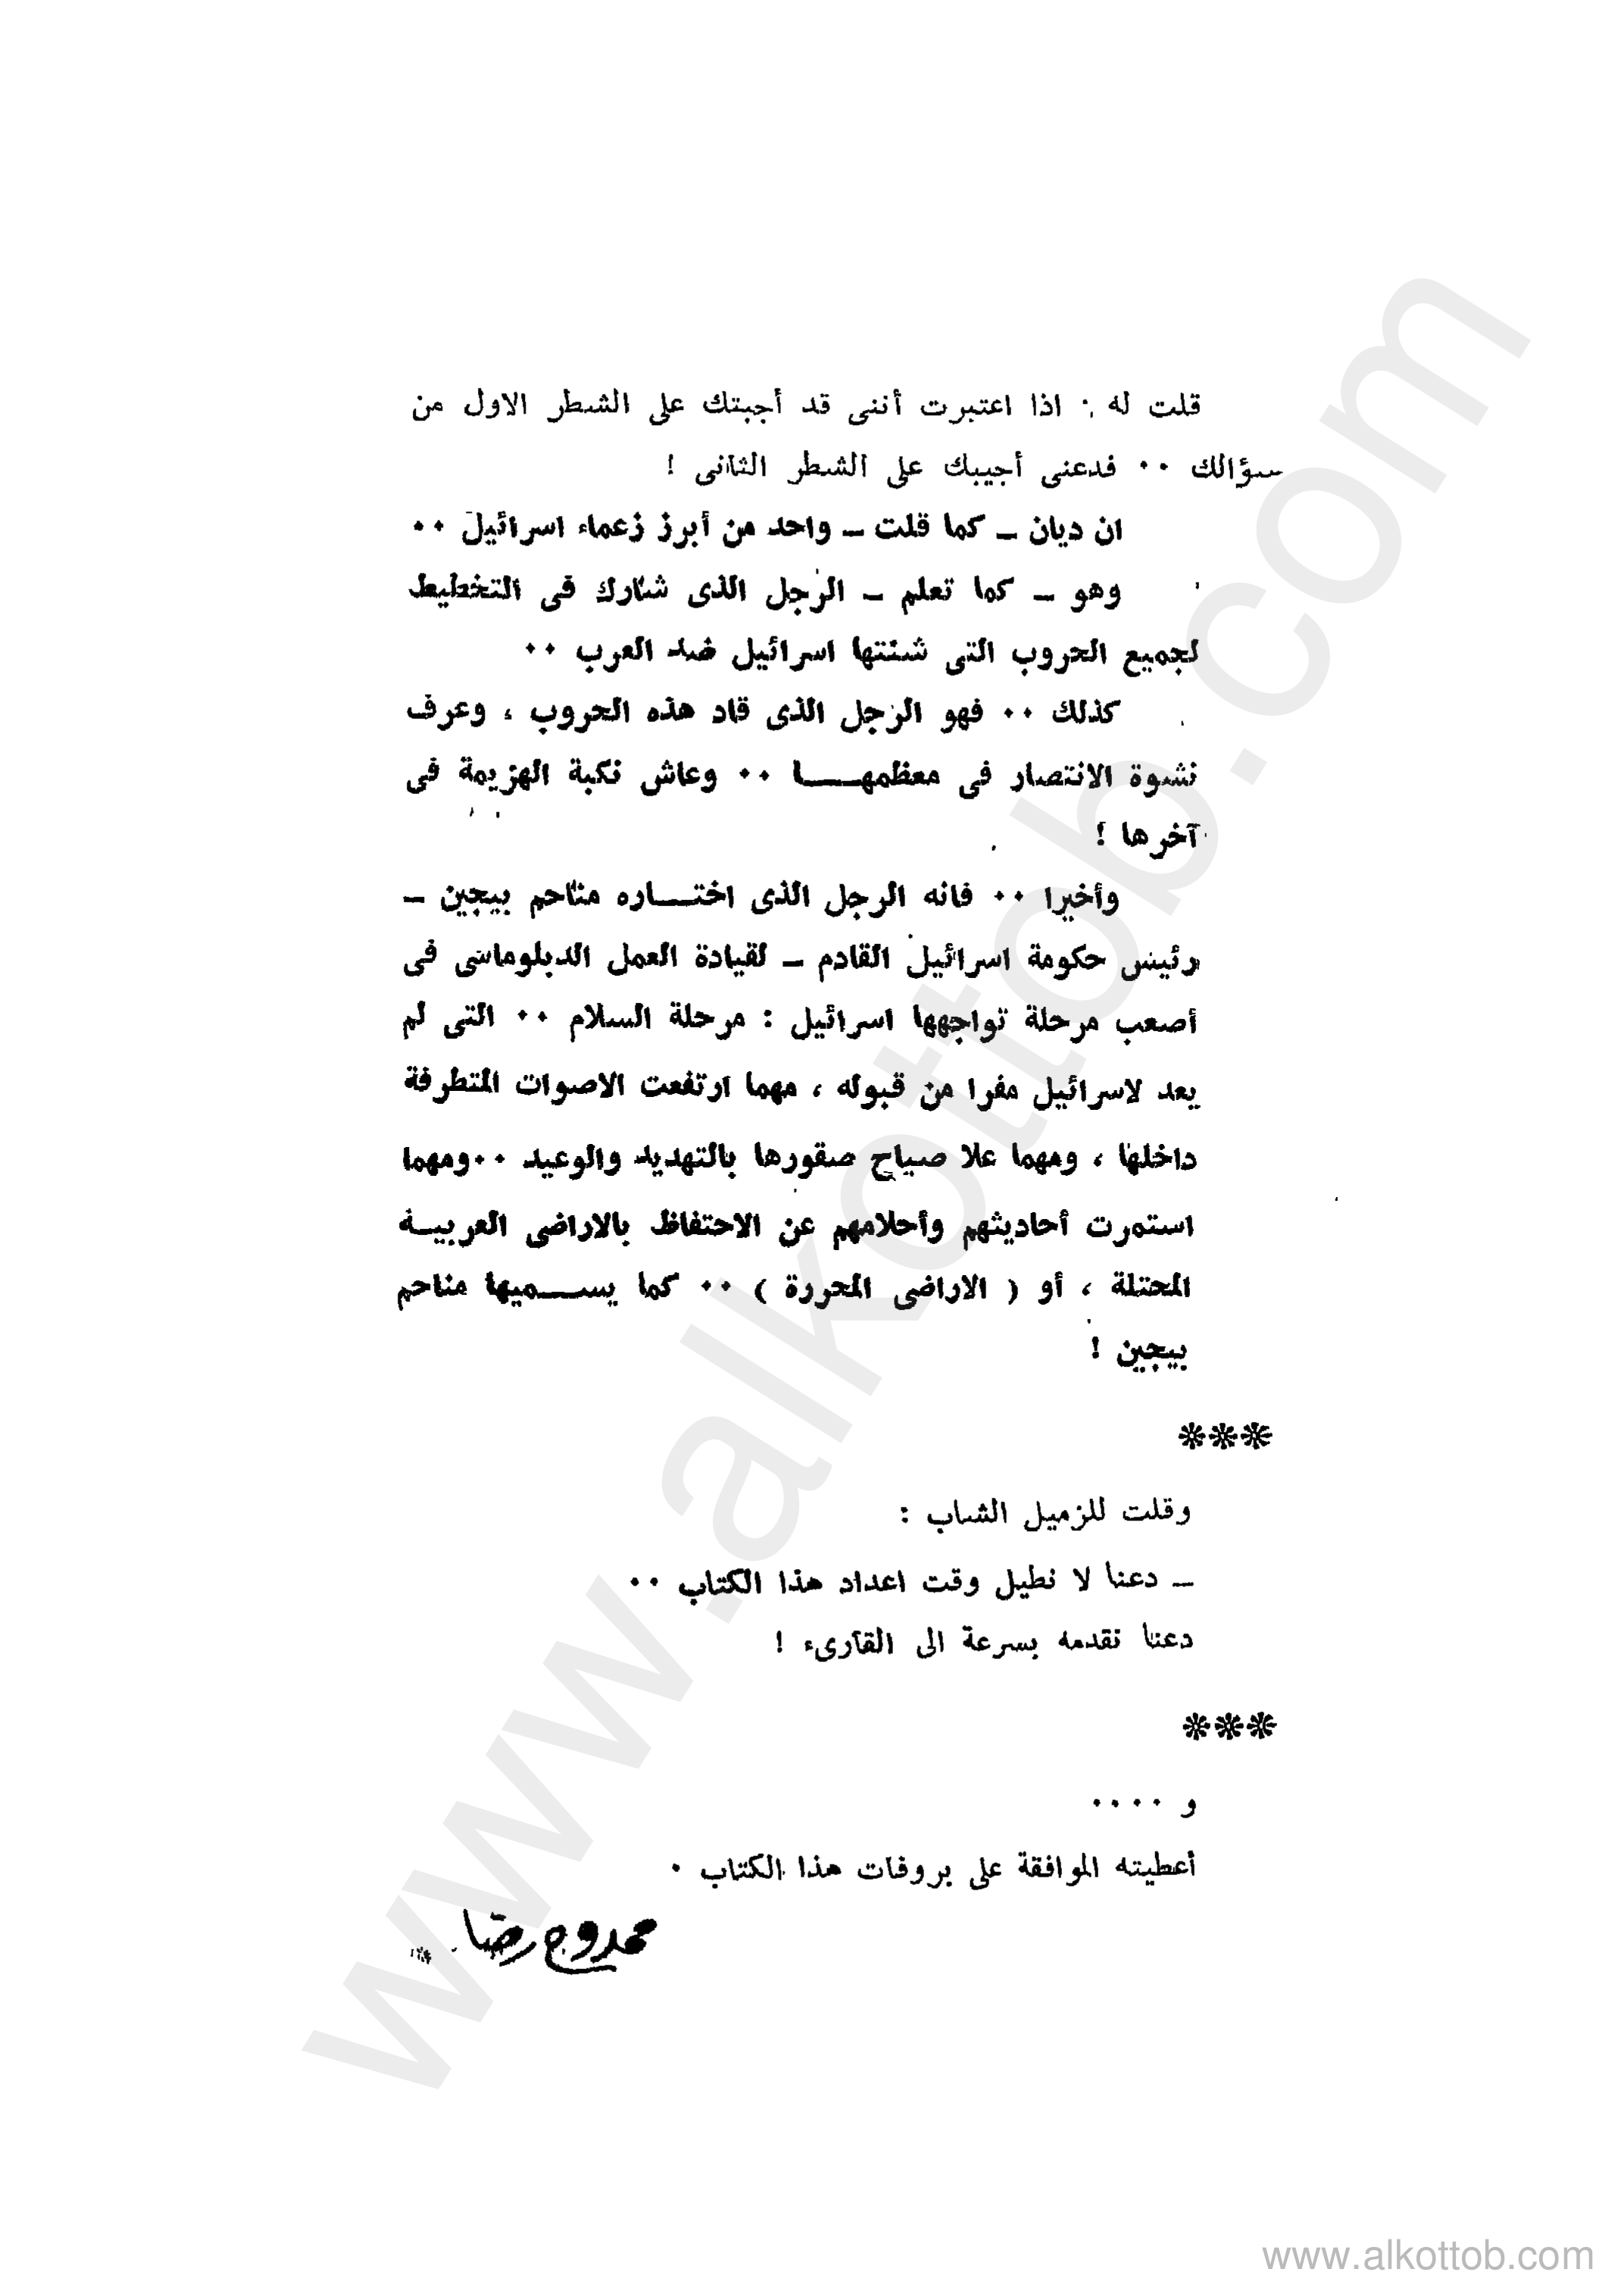 قلت له : اذا اعتبرت أننى قد أجبتك على الشطر الاول من
سؤالك ٠٠ فدعنى أجيبك على الشطر الثانى !
ان ديان ــ كما قلت ــ واحد من أبرز زعماء اسرائيل ٠٠
وهو ــ كما تعلم ــ الرجل الذى شارك فى التخطيط
لجميع الحروب التى شنتها اسرائيل ضد العرب ٠٠
كذلك ٠٠ فهو الرجل الذى قاد هذه الحروب ، وعرف
نشوة الانتصار فى معظمهـــــا ٠٠ وعاش نكبة الهزيمة فى
آخرها !
وأخيرا ٠٠ فانه الرجل الذى اختـــاره مناحم بيجين ــ
رئيس حكومة اسرائيل القادم ــ لقيادة العمل الدبلوماسى فى
أصعب مرحلة تواجهها اسرائيل : مرحلة السلام ٠٠ التى لم
يعد لاسرائيل مفرا من قبوله ، مهما ارتفعت الاصوات المتطرفة
داخلها ، ومهما علا صياح صقورها بالتهديد والوعيد ٠٠ومهما
استمرت أحاديثهم وأحلامهم عن الاحتفاظ بالاراضى العربيــة
المحتلة ، أو ( الاراضى المحررة ) ٠٠ كما يســـميها مناحم
بيجين !
***
وقلت للزميل الشاب :
ــ دعنا لا نطيل وقت اعداد هذا الكتاب ٠٠
دعنا نقدمه بسرعة الى القارىء !
***
و ٠٠٠٠
أعطيته الموافقة على بروفات هذا الكتاب ٠
ممدوح رضا
www.alkottob.com
www.alkottob.com